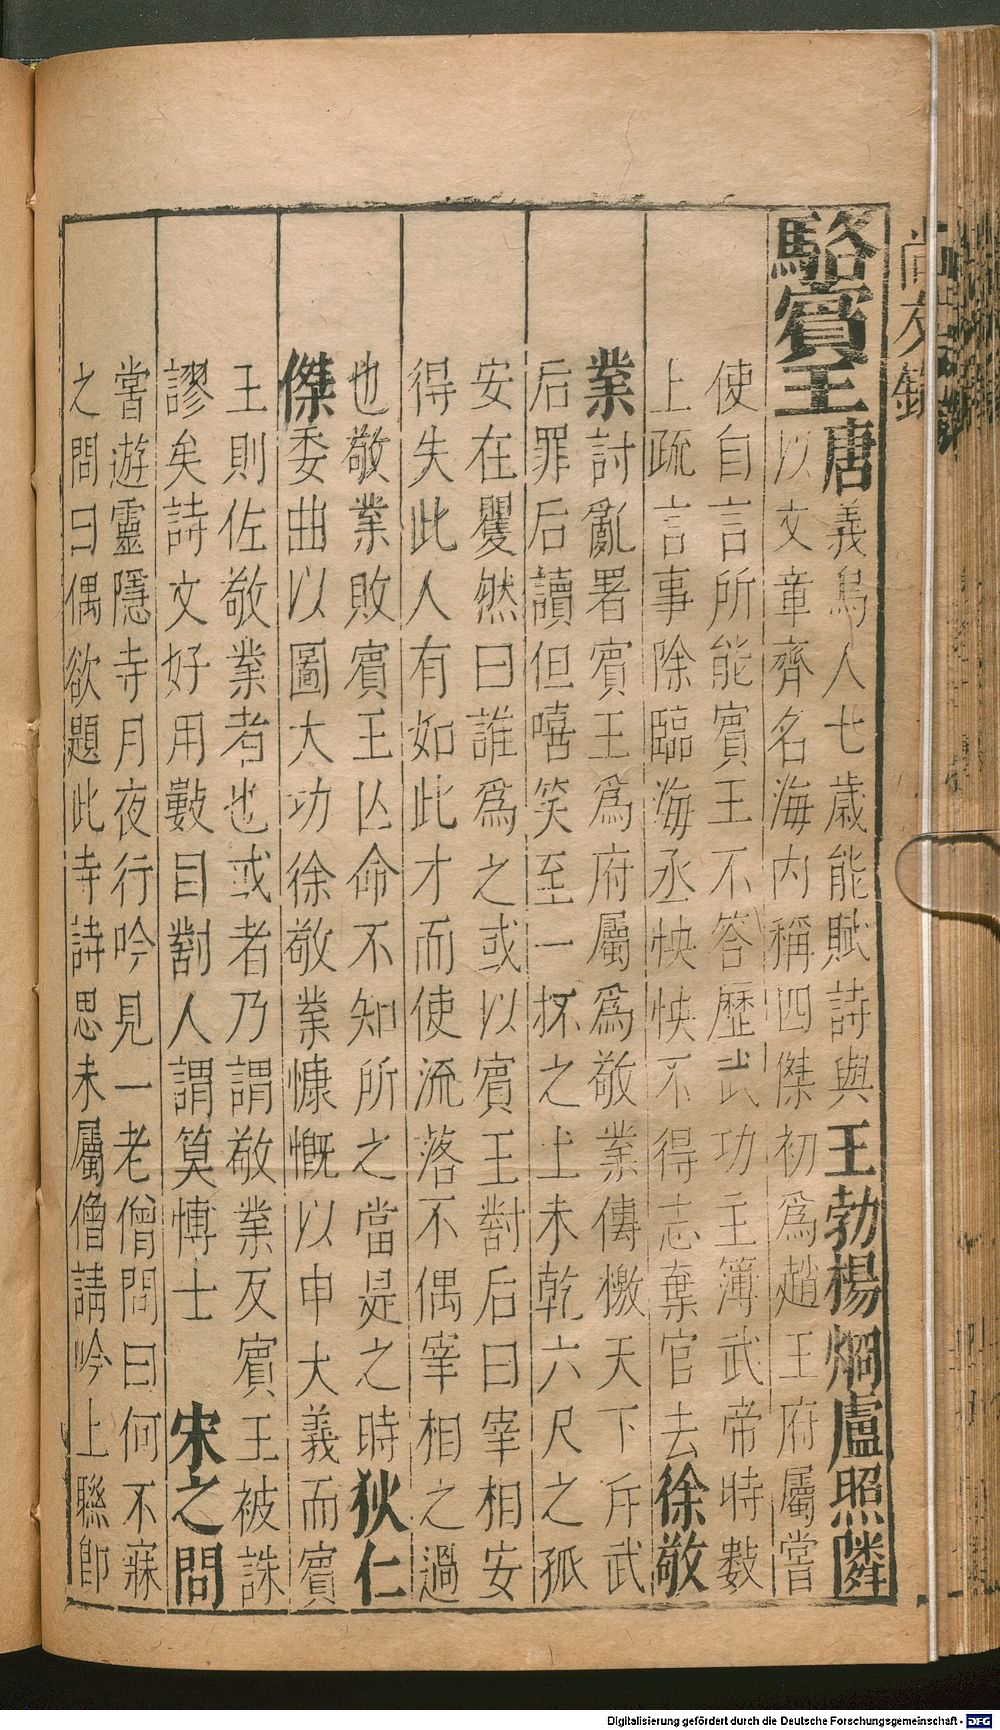 駱賓王唐義烏人七歲能賦詩與王勃楊烱盧照隣
以文章齊名海內稱四傑初爲趙王府屬嘗
使自言所能賓王不答歷武功主簿武帝時數
上疏言事除臨海丞怏怏不得志棄官去徐敬
業討亂署賓王爲府屬爲敬業傳檄天下斥武
后罪后讀但嘻笑至一抔之土未乾六尺之孤
安在矍然曰誰爲之或以賓王對后曰宰相安
得失此人有如此才而使流落不偶宰相之過
也敬業敗賓王亾命不知所之當是之時狄仁
傑委曲以圖大功徐敬業慷慨以申大義而賓
王則佐敬業者也或者乃謂敬業反賓王被誅
謬矣詩文好用數目對人謂筭愽士 宋之問
嘗遊靈隱寺月夜行吟見一老僧問曰何不寐
之問曰偶欲題此寺詩思未屬僧請吟上聯卽
尚友錄
Digitalisierung gefördert durch die Deutsche Forschungsgemeinschaft - DFG